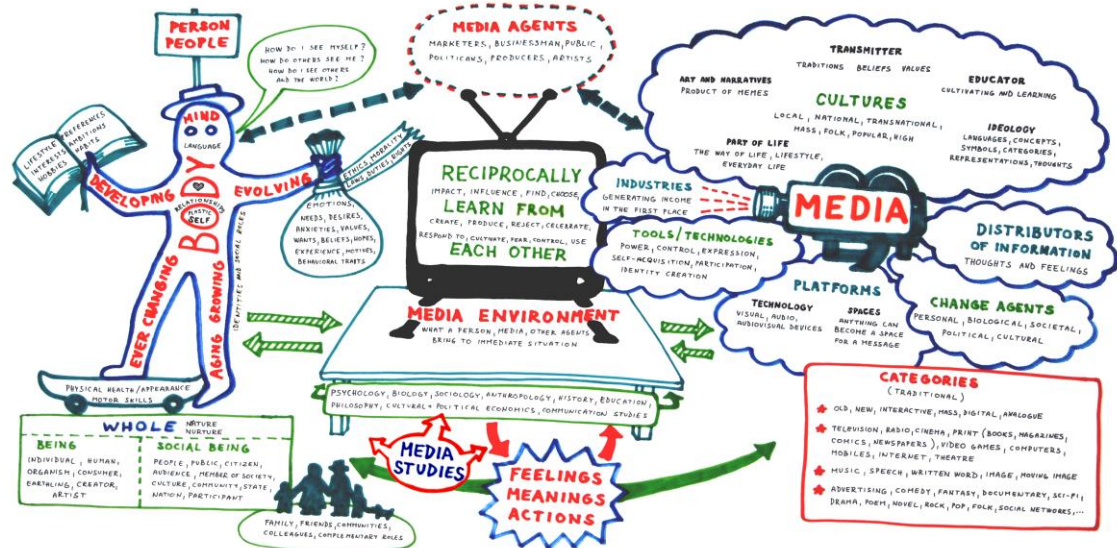 PERSON
PEOPLE
HOW DO I SEE MYSELF?
HOW DO OTHERS SEE ME?
HOW DO I SEE OTHERS
AND THE WORLD?
MIND
LANGUAGE
LIFESTYLE
INTERESTS
HOBBIES
PREFERENCES
AMBITIONS
HABITS
DEVELOPING
EVOLVING
BODY
RELATIONSHIPS
PLASTIC
SELF
EVER CHANGING
AGING GROWING
IDENTITIES AND SOCIAL ROLES
ETHICS, MORALITY
LAWS, DUTIES, RIGHTS
EMOTIONS,
NEEDS, DESIRES,
ANXIETIES, VALUES,
WANTS, BELIEFS, HOPES,
EXPERIENCE, MOTIVES,
BEHAVIORAL TRAITS
PHYSICAL HEALTH/APPEARANCE
MOTOR SKILLS
WHOLE NATURE
NURTURE
BEING
INDIVIDUAL, HUMAN,
ORGANISM, CONSUMER,
EARTHLING, CREATOR,
ARTIST
SOCIAL BEING
PEOPLE, PUBLIC, CITIZEN,
AUDIENCE, MEMBER OF SOCIETY,
CULTURE, COMMUNITY, STATE,
NATION, PARTICIPANT
FAMILY, FRIENDS, COMMUNITIES,
COLLEAGUES, COMPLEMENTARY ROLES
MEDIA AGENTS
MARKETERS, BUSINESMAN, PUBLIC,
POLITICANS, PRODUCERS, ARTISTS
RECIPROCALLY
IMPACT, INFLUENCE, FIND, CHOOSE,
LEARN FROM
CREATE, PRODUCE, REJECT, CELEBRATE,
RESPOND TO, CULTIVATE, FEAR, CONTROL, USE
EACH OTHER
MEDIA ENVIRONMENT
WHAT A PERSON, MEDIA, OTHER AGENTS
BRING TO IMMEDIATE SITUATION
PSYCHOLOGY, BIOLOGY, SOCIOLOGY, ANTHROPOLOGY, HISTORY, EDUCATION,
PHILOSOPHY, CULTURAL + POLITICAL ECONOMICS, COMMUNICATION STUDIES
MEDIA
STUDIES
FEELINGS
MEANINGS
ACTIONS
TRANSMITTER
TRADITIONS BELIEFS VALUES
ART AND NARRATIVES
PRODUCT OF MEMES
EDUCATOR
CULTIVATING AND LEARNING
CULTURES
LOCAL, NATIONAL, TRANSNATIONAL,
MASS, FOLK, POPULAR, HIGH
IDEOLOGY
LANGUAGES, CONCEPTS,
SYMBOLS, CATEGORIES,
REPRESENTATIONS, THOUGHTS
PART OF LIFE
THE WAY OF LIFE, LIFESTYLE,
EVERYDAY LIFE
INDUSTRIES
GENERATING INCOME
IN THE FIRST PLACE
MEDIA
TOOLS/TECHNOLOGIES
POWER, CONTROL, EXPRESSION,
SELF-ACQUISITION, PARTICIPATION,
IDENTITY CREATION
DISTRIBUTORS
OF INFORMATION
THOUGHTS AND FEELINGS
PLATFORMS
TECHNOLOGY
VISUAL, AUDIO,
AUDIOVISUAL DEVICES
SPACES
ANYTHING CAN
BECOME A SPACE
FOR A MESSAGE
CHANGE AGENTS
PERSONAL, BIOLOGICAL, SOCIETAL,
POLITICAL, CULTURAL
CATEGORIES
(TRADITIONAL)
OLD, NEW, INTERACTIVE, MASS, DIGITAL, ANALOGUE
TELEVISION, RADIO, CINEMA, PRINT (BOOKS, MAGAZINES,
COMICS, NEWSPAPERS), VIDEO GAMES, COMPUTERS,
MOBILES, INTERNET, THEATRE
MUSIC, SPEECH, WRITTEN WORD, IMAGE, MOVING IMAGE
ADVERTISING, COMEDY, FANTASY, DOCUMENTARY, SCI-FI,
DRAMA, POEM, NOVEL, ROCK, POP, FOLK, SOCIAL NETWORKS,...